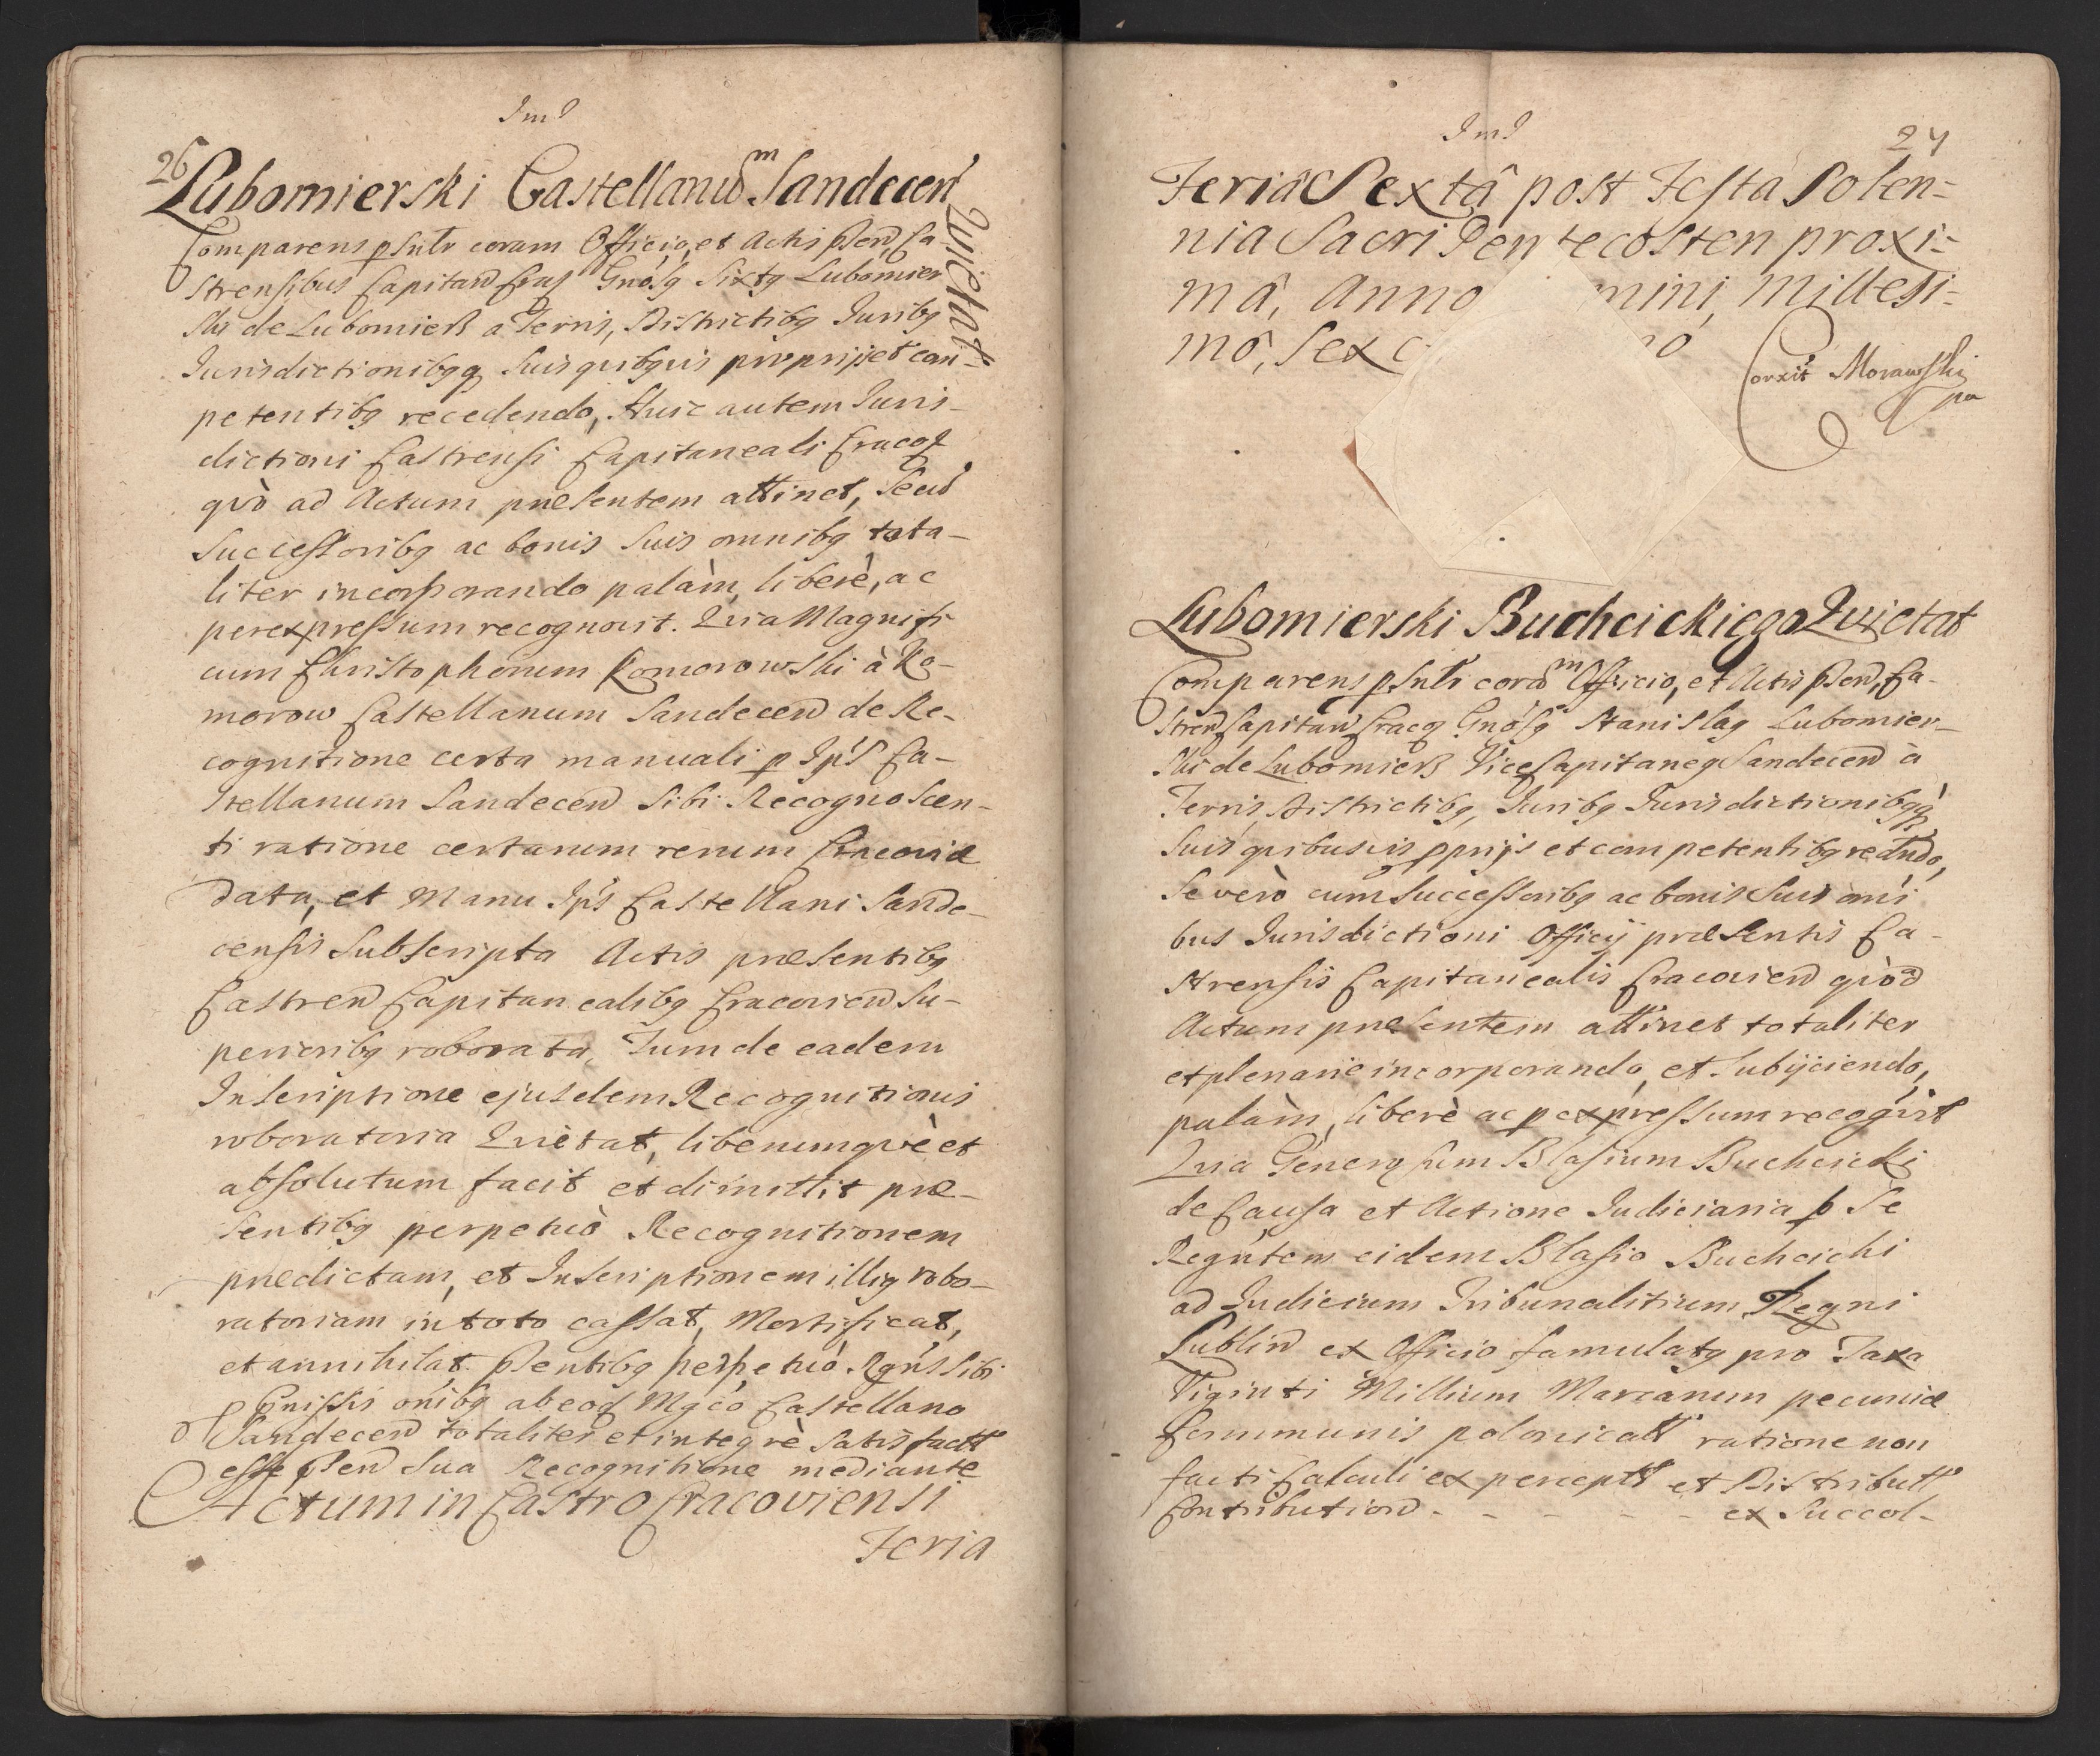 ImI
26
Lubomierski Castellanũm Sandecen̄ Quietat
Comparens psntr coram Officio, et Actis psen̄ Ca-
strensibus Capitan̄ Crac Gnosq Sixtq Lubomier
ski de Lubomierz a Terris, Districtibq Juribq
Jurisdictionibqq suis quibqvis proprijs et com-
petentibq recedendo, Huic autem Juris-
dictioni Castrensi Capitaneali Cracov
qvò ad Actum præsentem attinet, Secũ
Successoribq ac bonis suis omnibq tota-
liter incorporando palàm, liberè, ac
perexpressum recognovit. Quia Magnifi
cum Christophorum Komorowski à Ko-
morow Castellanum Sandecen̄ de Re-
cognitione certa manuali p Ips̃ Ca-
stellanum Sandecen̄ sibi Recognoscen-
ti ratione certarum rerum Cracoviæ
data, et Manu Ips̃ Castellani Sande-
censis Subscripta Actis præsentibq
Castren̄ Capitanealibq Cracovien̄ su-
perioribq roborata, Tum de eadem
Inscriptione ejusdem Recognitionis
roboratoria Quietat, liberumqvè et
absolutum facit et dimittit præ-
sentibq perpetuò Recognitionem
prædictam, et Inscriptionem illiq robo-
ratoriam in toto cassat, Mortificat,
et annihilat psentibq perpetuò. Rgńs sibi
p̱ p̱missis onibq ab eod Mgco Castellano
Sandecen̄ totaliter et integrè satisfactt
esse psen̄ sua Recognitione mediante
Actum in Castro Cracoviensi
Feria
ImI
27
Feriâ Sextâ post Festa Solen-
nia Sacri Pentecosten proxi-
mâ, Anno mini, Millesi-
mô, Sexc
Corxit Morawski
pa
Lubomierski Buchcickiego Quietat
Comparens psntr corãm Officio, et Actis psen̄, Ca-
stren̄ Capitan̄ Cracq Gnosq Stanislaq Lubomier-
ski de Lubomierz ViceCapitaneq Sandecen̄ à
Terris, Districtibq, Juribq Jurisdictionibqq
suis quibusvis p̱prijs et competentibq recdndo,
Se verò cum successoribq ac bonis suis omi
bus Jurisdictioni Officij præsentis Ca-
strensis Capitanealis Cracovien̄ qvòd
Actum præsentem attinet totaliter
et plenarie incorporando, et subijciendo,
palàm, liberè ac p̱ expressum recogvit
Quia Generq sum Blasium Buchcicki
de Causa et Actione Judiciaria p̱ Se
Regntem eidem Blasio Buchcicki
ad Judicium Tribunalitium Regni
Lublin̄ ex Officio famulatq pro Taxa
Viginti Millium Marcarum pecuniæ
Communis polonicatt ratione non
facti Calculi ex percept̃t et Distributt
Contribution̄ - - - - - ex Succol-